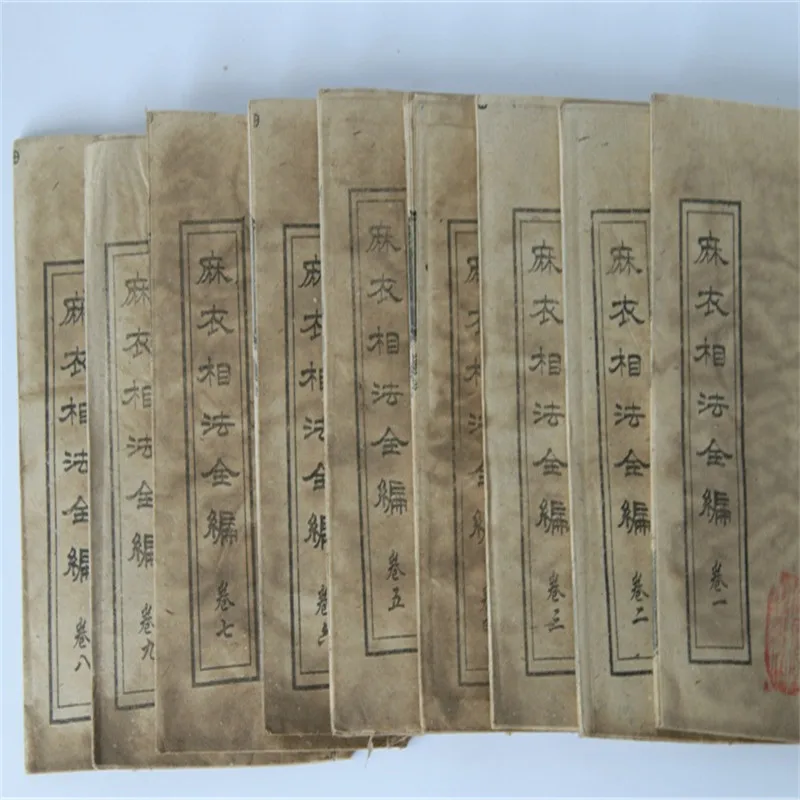 麻衣相法全編 卷一
麻衣相法全編 卷二
麻衣相法全編 卷三
麻衣相法全編
麻衣相法全編 卷五
麻衣相法全編 卷
麻衣相法全編 卷七
麻衣相法全編 卷九
麻衣相法全編 卷八